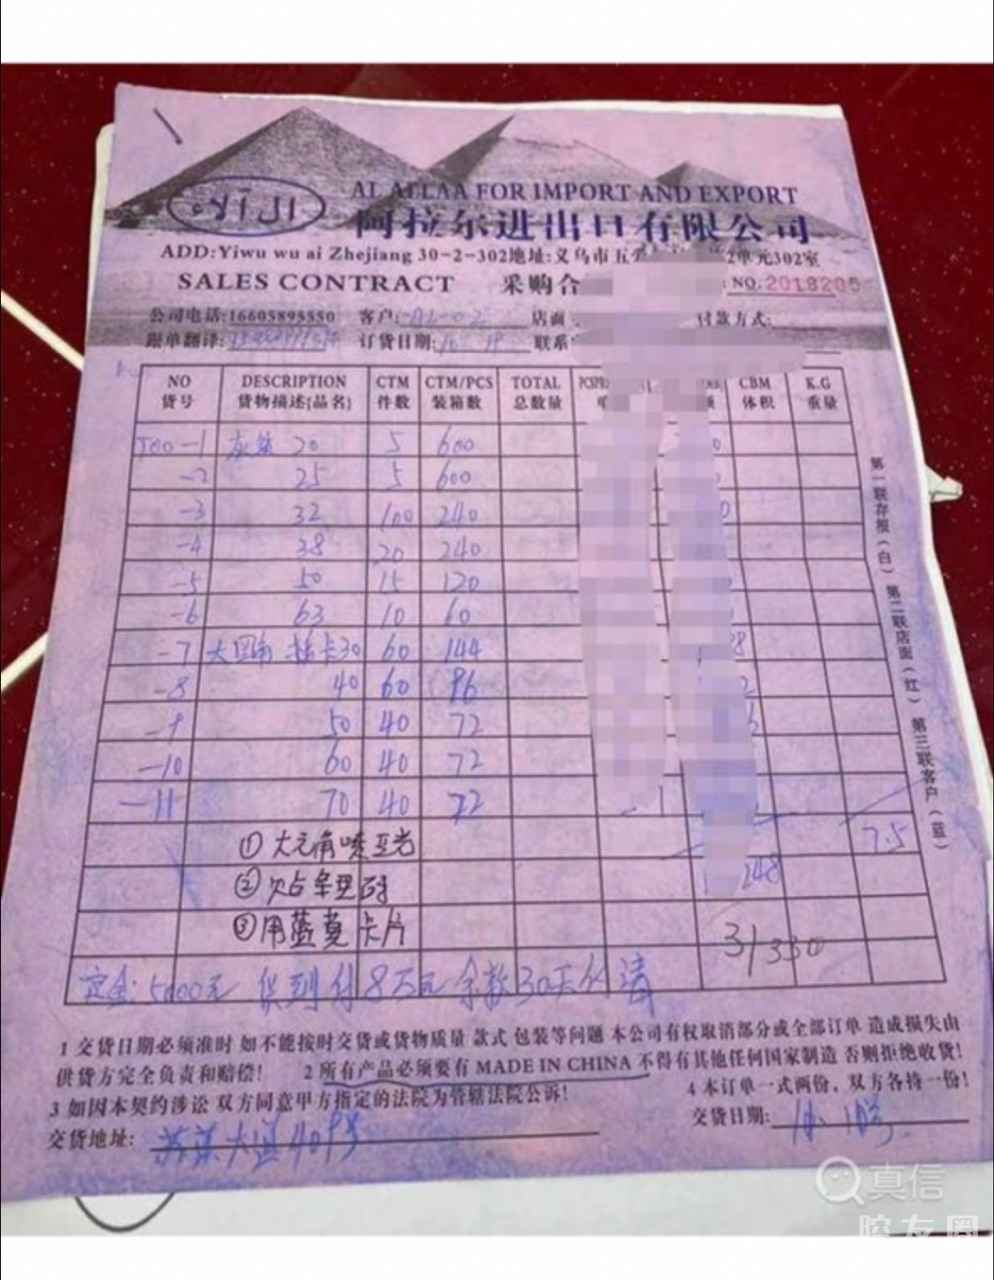 الآلاء
AL ALLAA FOR IMPORT AND EXPORT
阿拉尔进出口有限公司
ADD:Yiwu wu ai Zhejiang 30-2-302地址:义乌市五 2单元302室
SALES CONTRACT 采购合 NO. 2018205
公司电话:16605895550 客户: 店面 付款方式:
跟单翻译: 订货日期: 联系
NO DESCRIPTION CTM CTM/PCS TOTAL CBM K.G
货号 货物描述{品名} 件数 装箱数 总数量 体积 重量
-1 20 5 600
-2 25 5 600
-3 32 100 240
-4 38 20 240
-5 50 15 120
-6 63 10 60
-7 大圆角 插卡30 60 144
-8 40 60 96
-9 50 40 72
-10 60 40 72
-11 70 40 72
① 大元角喷亚光 7.5
② 248
③ 用蓝莫卡片
31330
定金:5000元 货到付8万元 余款30天付清
1 交货日期必须准时 如不能按时交货或货物质量 款式 包装等问题 本公司有权取消部分或全部订单 造成损失由
供货方完全负责和赔偿! 2 所有产品必须要有 MADE IN CHINA 不得有其他任何国家制造 否则拒绝收货!
3 如因本契约涉讼 双方同意甲方指定的法院为管辖法院公诉! 4 本订单一式两份，双方各持一份!
交货地址: 大道409号 交货日期:
第一联存根(白) 第二联店面(红) 第三联客户(蓝)
真信
腔友圈